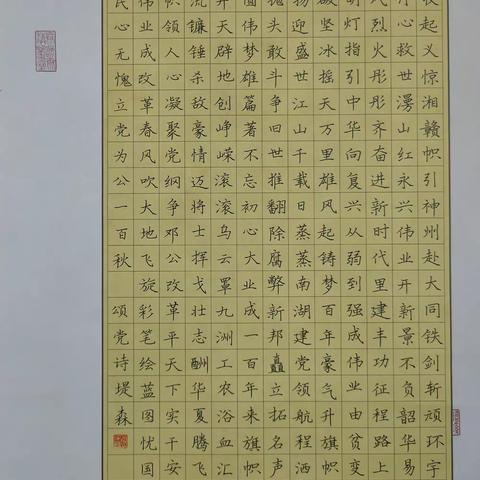 起义惊湘赣帜引神州赴大同铁剑斩顽环宇
心救世漫山红永兴伟业开新景不负韶华易
烈火彤彤齐奋进新时代里建丰功征程路上
灯指引中华向复兴从弱到强成伟业由贫变
坚冰摇天万里雄风起铸梦百年豪气升旗帜
迎盛世江山千载日蒸蒸南湖建党领航程洒
头敢斗争旧世推翻除腐弊新邦矗立拓名声
圆伟梦雄篇著不忘初心大业成一百年来旗帜
开天辟地创峥嵘滚滚乌云罩九洲工农浴血汇
流镰锤杀敌豪情迈将士挥戈壮志酬华夏腾飞
帜领人心凝聚党纲争邓公改革平天下实干安
伟业成改革春风吹大地飞旋彩笔绘蓝图忧国
民心无愧立党为公一百秋 颂党诗堤森